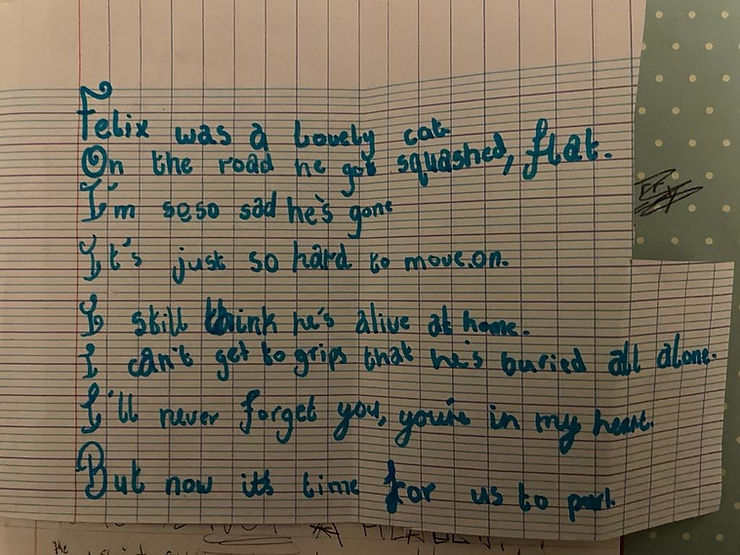 Felix was a lovely cat
On the road he got squashed, flat.
I'm soso sad he's gone
It's just so hard to move.on.
I still think he's alive at home.
I can't get to grips that he's buried all alone.
I'll never forget you, you're in my heart.
But now it's time for us to part.
He